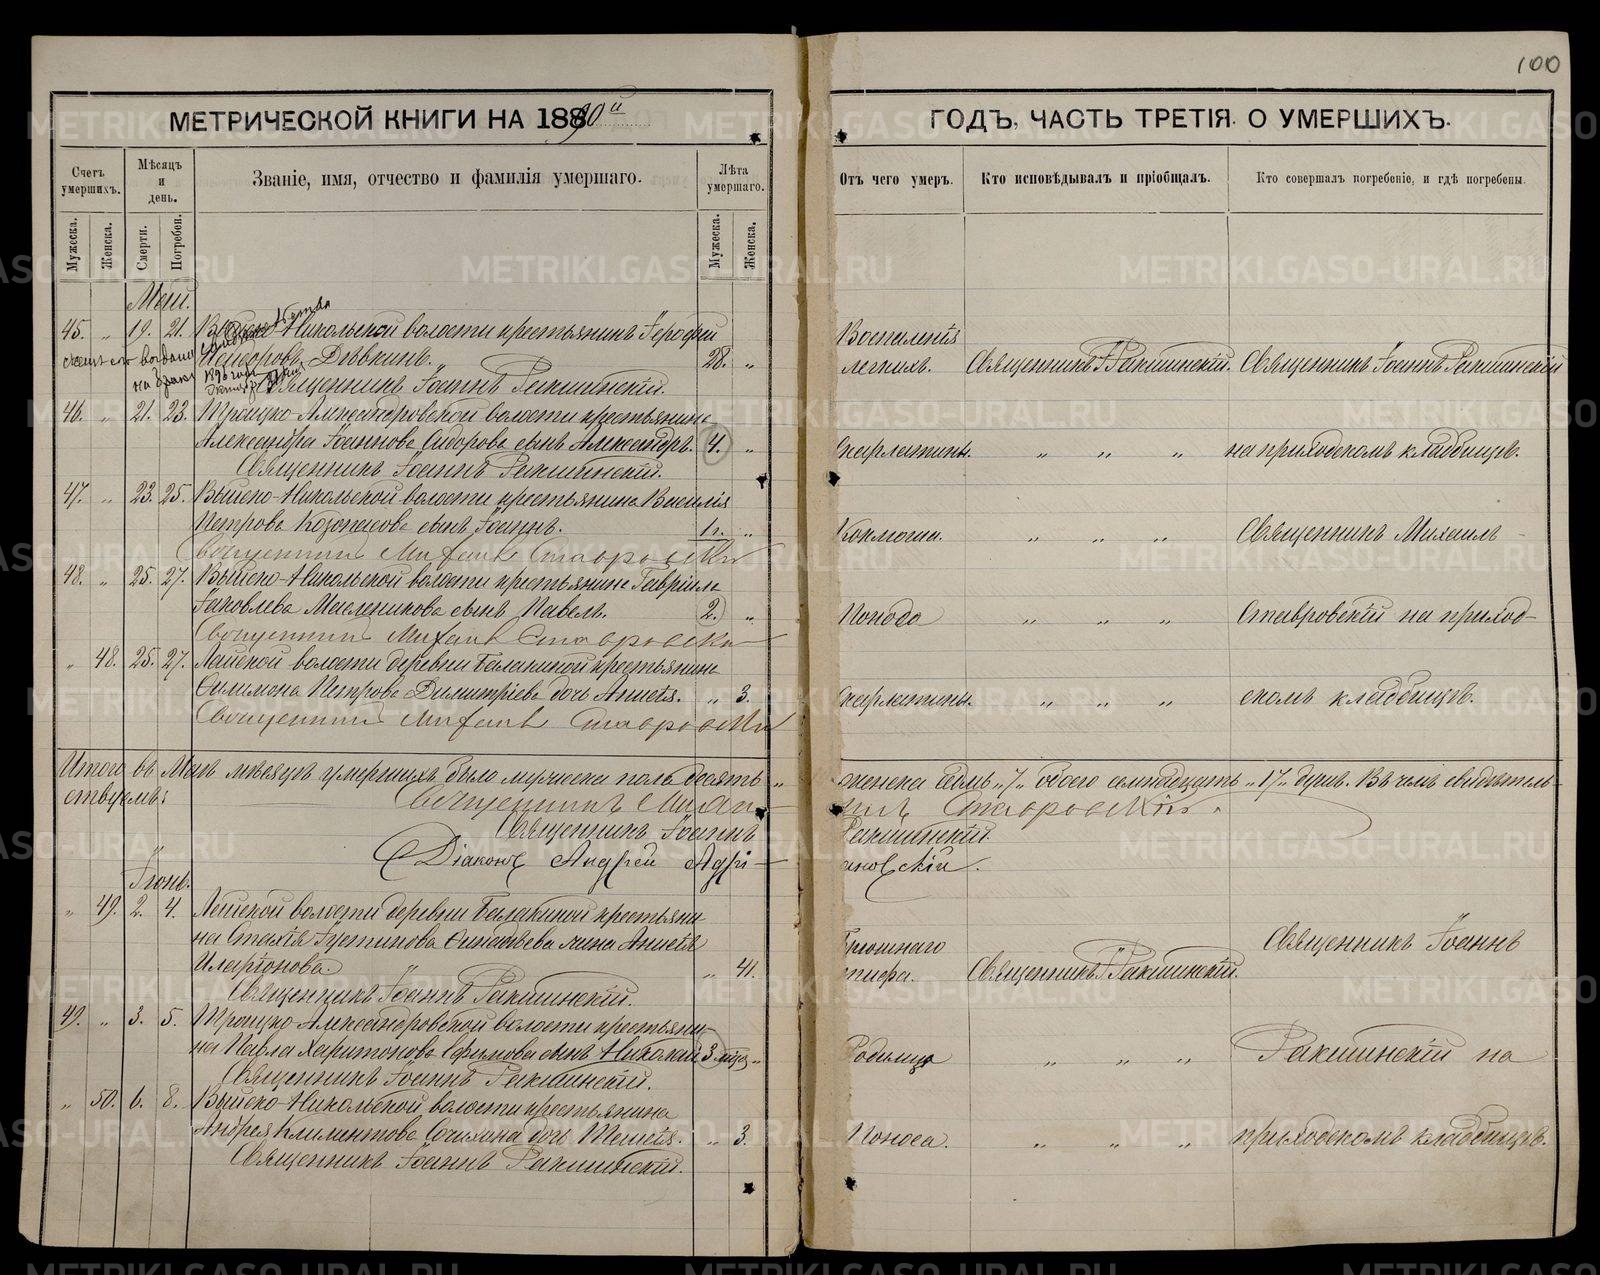 100
МЕТРИЧЕСКОЙ КНИГИ НА 1890й
ГОДЪ, ЧАСТЬ ТРЕТІЯ. О УМЕРШИХЪ.
Счетъ умершихъ.
Мѣсяцъ и день.
Званіе, имя, отчество и фамилія умершаго.
Лѣта умершаго.
Отъ чего умеръ.
Кто исповѣдывалъ и пріобщалъ.
Кто совершалъ погребеніе, и гдѣ погребены.
Мужеска.
Женска.
Смерти.
Погребен.
Мужеска.
Женска.
Май.
45. „ 19. 21. Никольской волости крестьянинъ Іерофей
Дѣвкинъ. 28. „ Воспаленія легкихъ. Священникъ І Ракшинскій. Священникъ Іоаннъ Ракшинскій
1896 года
Священникъ Іоаннъ Ракшинскій.
46. „ 21. 23. Троицко-Александровской волости крестьянина
Александра Іоаннова Сидорова сынъ Александръ. 4. „ Скарлатины. „ „ „ на приходскомъ кладбищѣ.
Священникъ Іоаннъ Ракшинскій.
47. „ 23. 25. Выйско-Никольской волости крестьянина Василія
Петрова Козопасова сынъ Іоаннъ. 1 г. „ „ „ „ Священникъ Михаилъ
Священникъ Михаилъ Ставровскій
48. „ 25. 27. Выйско-Никольской волости крестьянина Гавріила
Іаковлева Масленикова сынъ Павелъ. 2. „ Поноса „ „ „ Ставровскій на приход-
Священникъ Михаилъ Ставровскій
„ 48. 25. 27. Лайской волости деревни Балакиной крестьянина
Филимона Петрова Димитріева дочь Анисія. „ 3. Скарлатины. „ „ „ скомъ кладбищѣ.
Священникъ Михаилъ Ставровскій
Итого въ Маѣ мѣсяцѣ умершихъ было мужеска полъ десять „ женска семь „7„ обоего семнадцать „17„ душъ. Въ чемъ свидѣтель-
ствуемъ:
Священникъ Михаилъ Ставровскій.
Священникъ Іоаннъ Ракшинскій
Діаконъ Андрей Адріановскій.
Іюнь.
„ 49. 2. 4. Лайской волости деревни Балакиной крестьяни-
на Стахія Іустинова жена Анисія
Иларіонова. „ 41. Брюшнаго тифа. Священникъ І Ракшинскій. Священникъ Іоаннъ
Священникъ Іоаннъ Ракшинскій.
49. „ 3. 5. Троицко-Александровской волости крестьяни-
на Павла Харитонова Ефимова сынъ Николай 3 мѣс. „ Родимца „ „ „ Ракшинскій на
Священникъ Іоаннъ Ракшинскій.
„ 50. 6. 8. Выйско-Никольской волости крестьянина
Андрея Климентова дочь „ 3. Поноса. „ „ „ приходскомъ кладбищѣ.
Священникъ Іоаннъ Ракшинскій.
METRIKI.GASO-URAL.RU